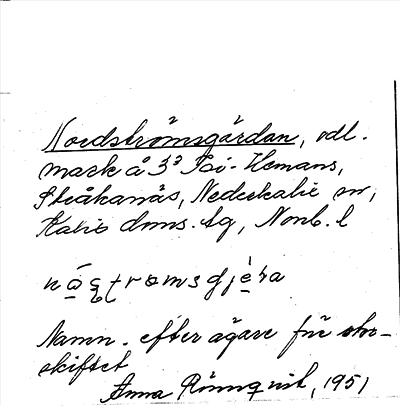 Nordströmsgårdan, odl.
mark å 3³ Toi-Hemans,
Stråkanäs, Nederkalix sn,
Kalix dmns. tg, Nonb. l
Namn efter ägare för stor-
skiftet
Anna Rönnquist, 1951